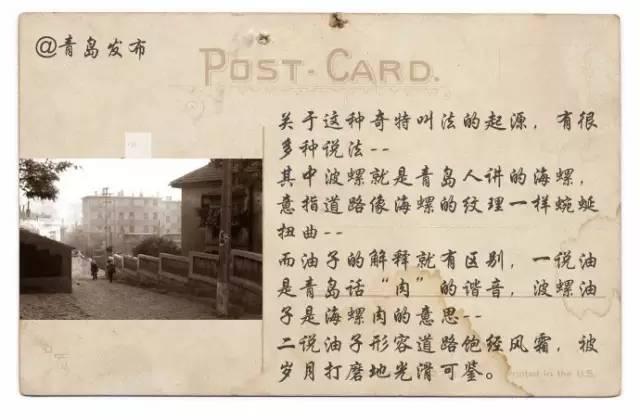 @青岛发布
POST-CARD.
关于这种奇特叫法的起源，有很
多种说法--
其中波螺就是青岛人讲的海螺，
意指道路像海螺的纹理一样蜿蜒
扭曲--
而油子的解释就有区别，一说油
是青岛话“肉”的谐音，波螺油
子是海螺肉的意思--
二说油子形容道路饱经风霜，被
岁月打磨地光滑可鉴。
Printed in the U.S.